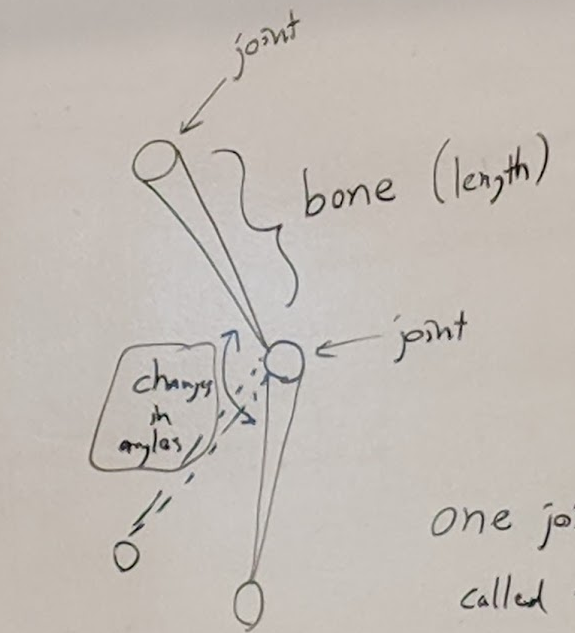 joint
bone (length)
joint
changes
in
angles
one joi
called